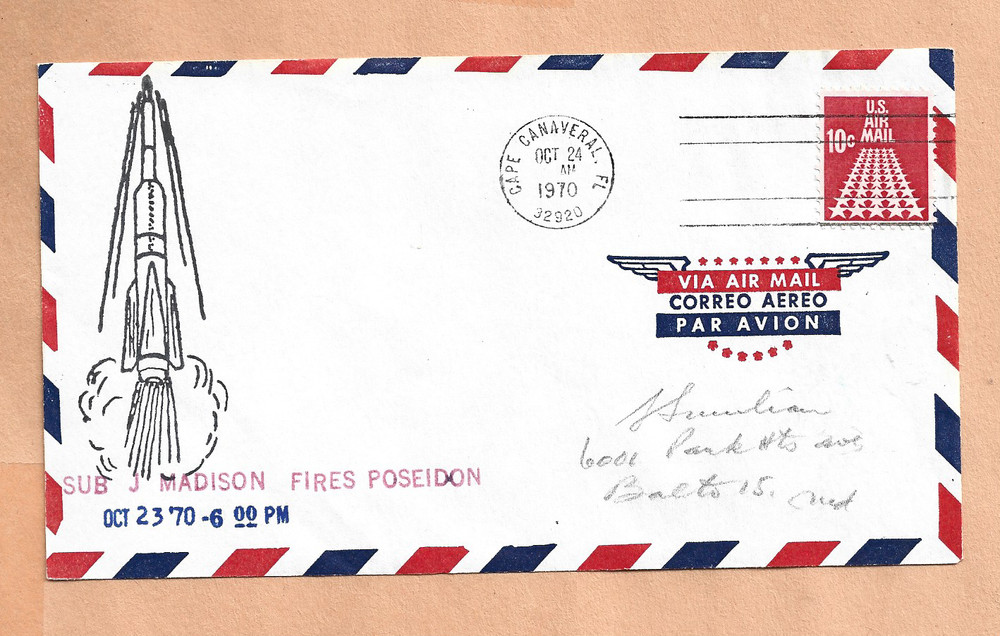 U.S.
AIR
MAIL
10c
CAPE CANAVERAL, FL
OCT 24
AM
1970
32920
VIA AIR MAIL
CORREO AEREO
PAR AVION
6001 Park Hts ave
Balto 15. Md
SUB J MADISON FIRES POSEIDON
OCT 23 '70 - 6 00 PM